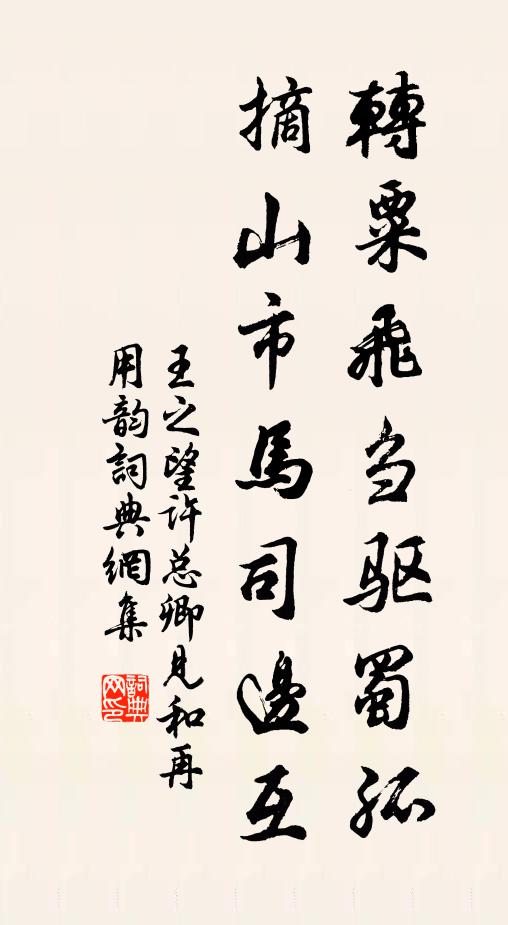 轉粟飛刍驱蜀孤
摘山市馬司邊互
王之望许总卿見和再
用韵詞典網集
詞典网印